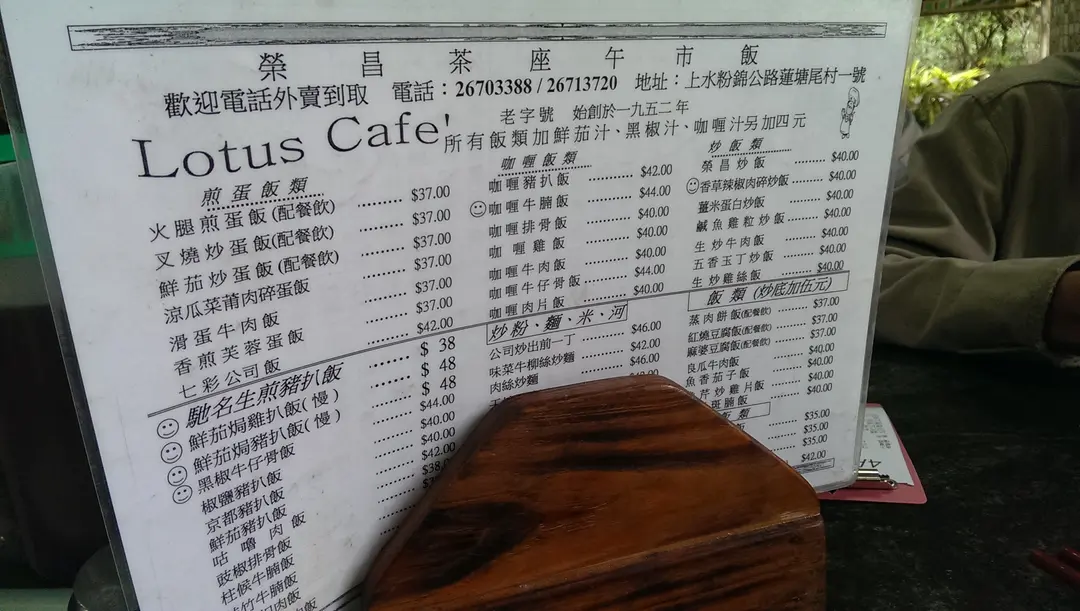 榮昌茶座午市飯
歡迎電話外賣到取 電話：26703388 / 26713720 地址：上水粉錦公路蓮塘尾村一號
老字號 始創於一九五二年
Lotus Cafe'
所有飯類加鮮茄汁、黑椒汁、咖喱汁另加四元
煎蛋飯類
火腿煎蛋飯(配餐飲) ........ $37.00
叉燒炒蛋飯(配餐飲) ........ $37.00
鮮茄炒蛋飯(配餐飲) ........ $37.00
涼瓜菜莆肉碎蛋飯 ........ $37.00
滑蛋牛肉飯 ........ $37.00
香煎芙蓉蛋飯 ........ $37.00
七彩公司飯 ........ $42.00
馳名生煎豬扒飯 ........ $ 38
鮮茄焗雞扒飯(慢) ........ $ 48
鮮茄焗豬扒飯(慢) ........ $ 48
黑椒牛仔骨飯 ........ $44.00
椒鹽豬扒飯 ........ $40.00
京都豬扒飯 ........ $40.00
鮮茄豬扒飯 ........ $42.00
咕嚕肉飯
豉椒排骨飯
柱候牛腩飯
竹牛腩飯
咖喱飯類
咖喱豬扒飯 ........ $42.00
咖喱牛腩飯 ........ $44.00
咖喱排骨飯 ........ $40.00
咖喱雞飯 ........ $40.00
咖喱牛肉飯 ........ $40.00
咖喱牛仔骨飯 ........ $44.00
咖喱肉片飯 ........ $40.00
炒粉、麵、米、河
公司炒出前一丁 ........ $46.00
味菜牛柳絲炒麵 ........ $42.00
肉絲炒麵 ........ $46.00
炒飯類
榮昌炒飯 ........ $40.00
香草辣椒肉碎炒飯 ........ $40.00
薑米蛋白炒飯 ........ $40.00
鹹魚雞粒炒飯 ........ $40.00
生炒牛肉飯 ........ $40.00
五香玉丁炒飯 ........ $40.00
生炒雞絲飯 ........ $40.00
飯類 (炒底加伍元)
蒸肉餅飯(配餐飲) ........ $37.00
紅燒豆腐飯(配餐飲) ........ $37.00
麻婆豆腐飯(配餐飲) ........ $37.00
良瓜牛肉飯 ........ $40.00
魚香茄子飯 ........ $40.00
芹炒雞片飯 ........ $40.00
斑腩飯 ........ $40.00
飯類
$35.00
$35.00
$35.00
$42.00